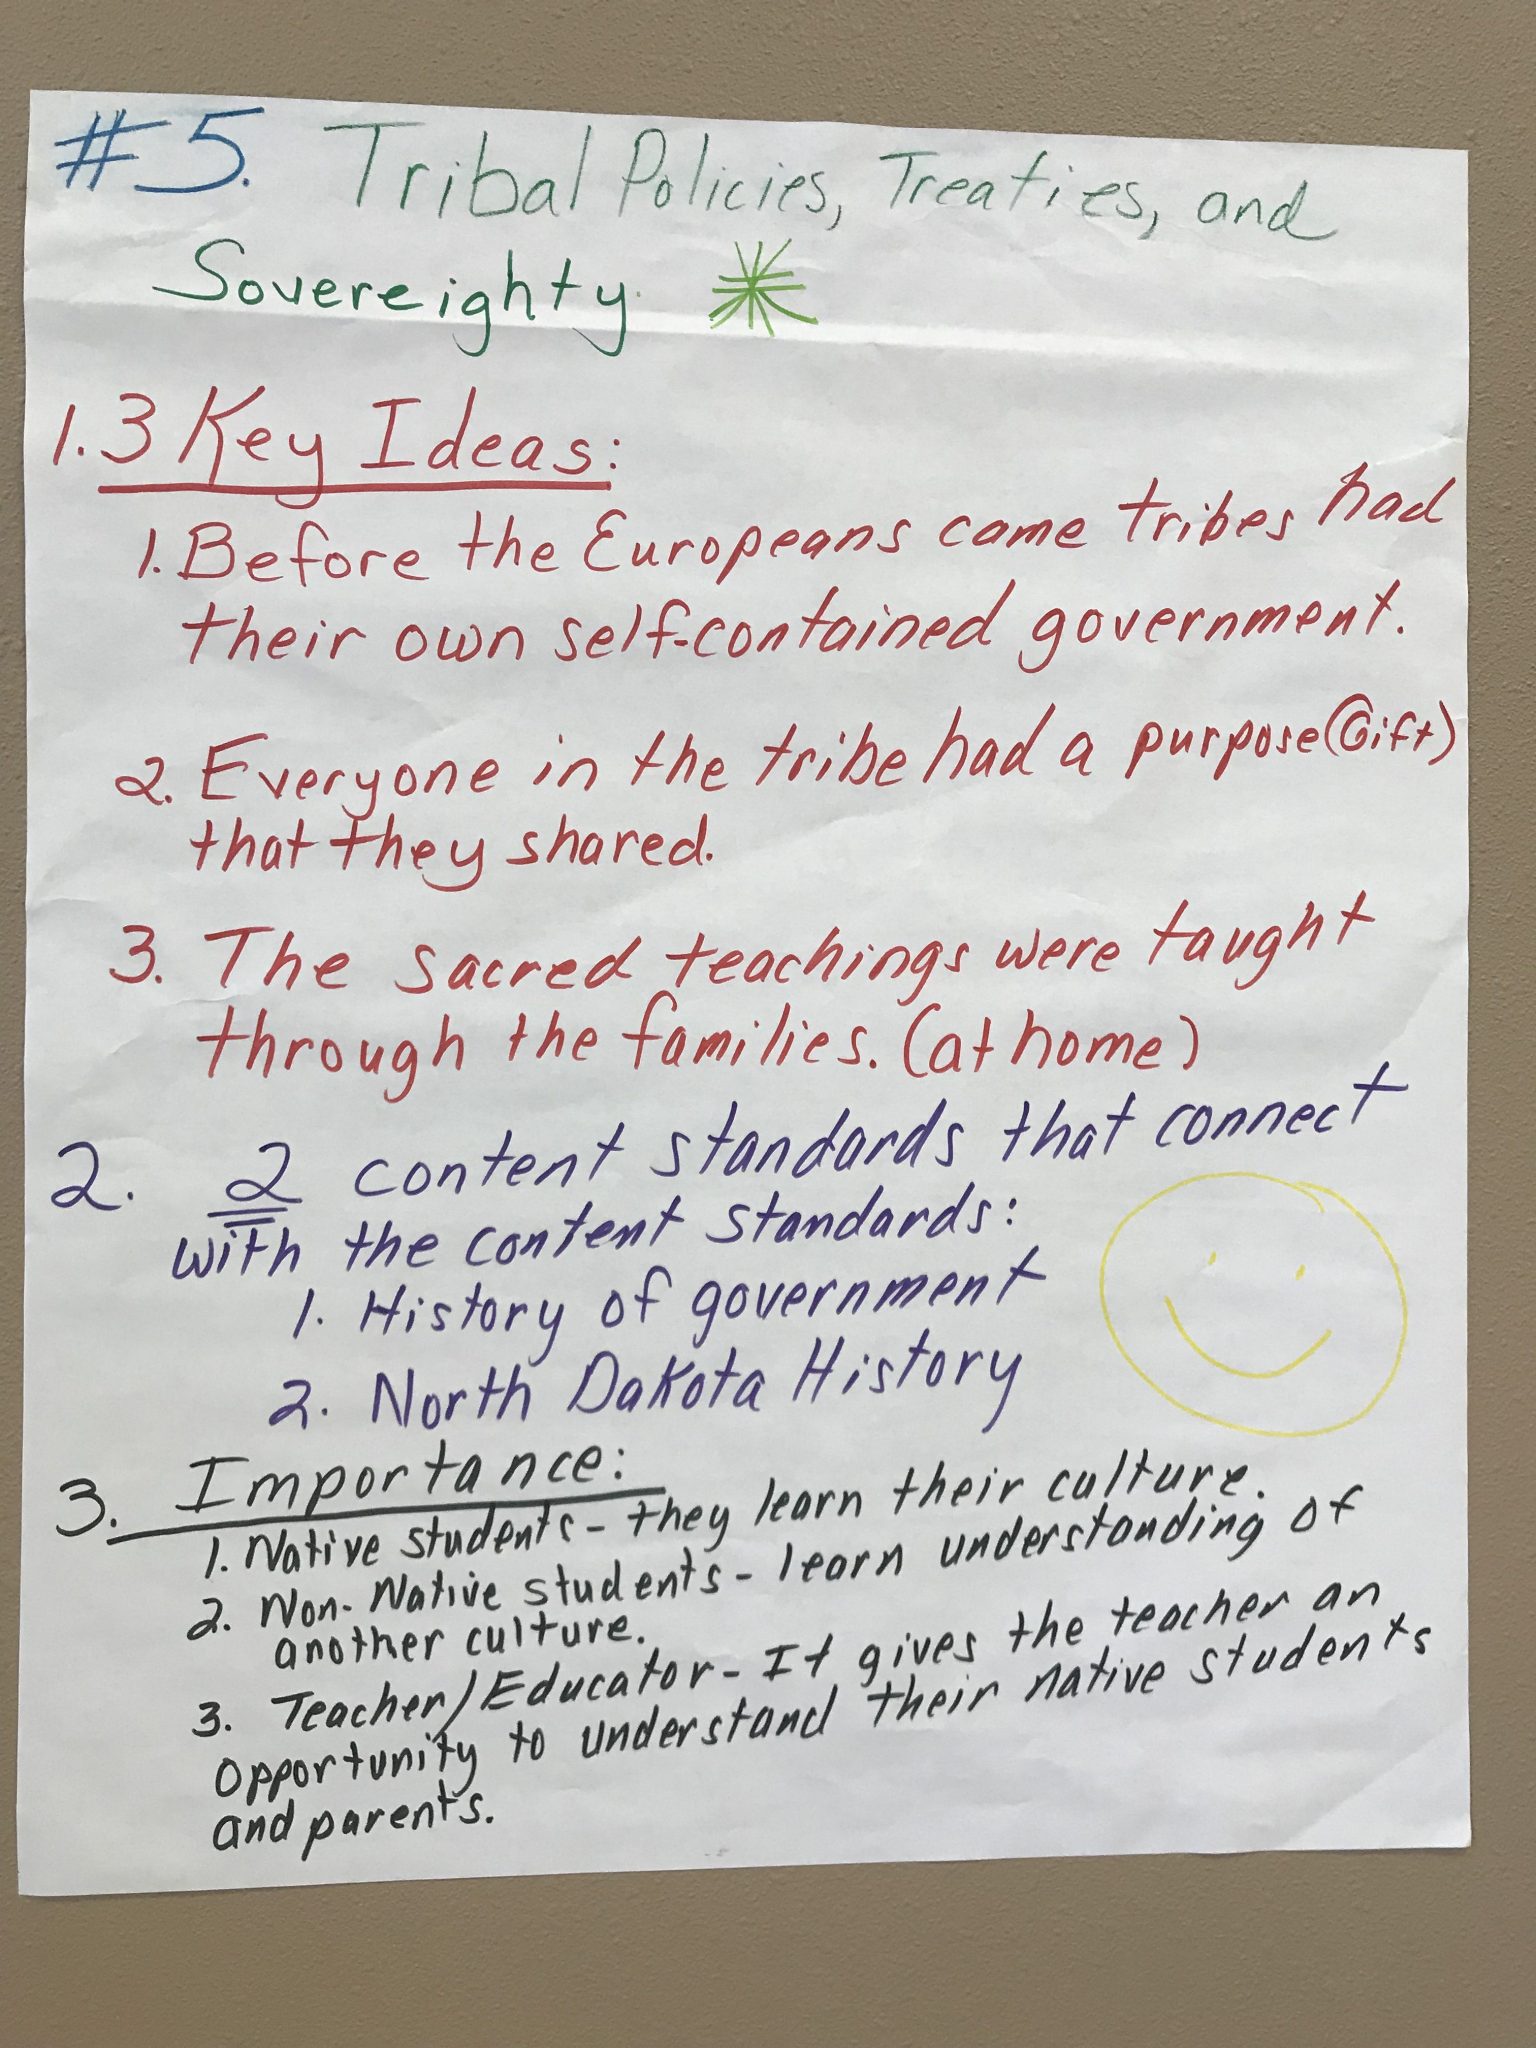 #5. Tribal Policies, Treaties, and
Sovereighty.
1. 3 Key Ideas:
1. Before the Europeans came tribes had
their own self-contained government.
2. Everyone in the tribe had a purpose (Gift)
that they shared.
3. The sacred teachings were taught
through the families. (at home)
2. 2 content standards that connect
with the content standards:
1. History of government
2. North Dakota History
3. Importance:
1. Native students - they learn their culture.
2. Non-Native students - learn understanding of
another culture.
3. Teacher/Educator - It gives the teacher an
opportunity to understand their native students
and parents.